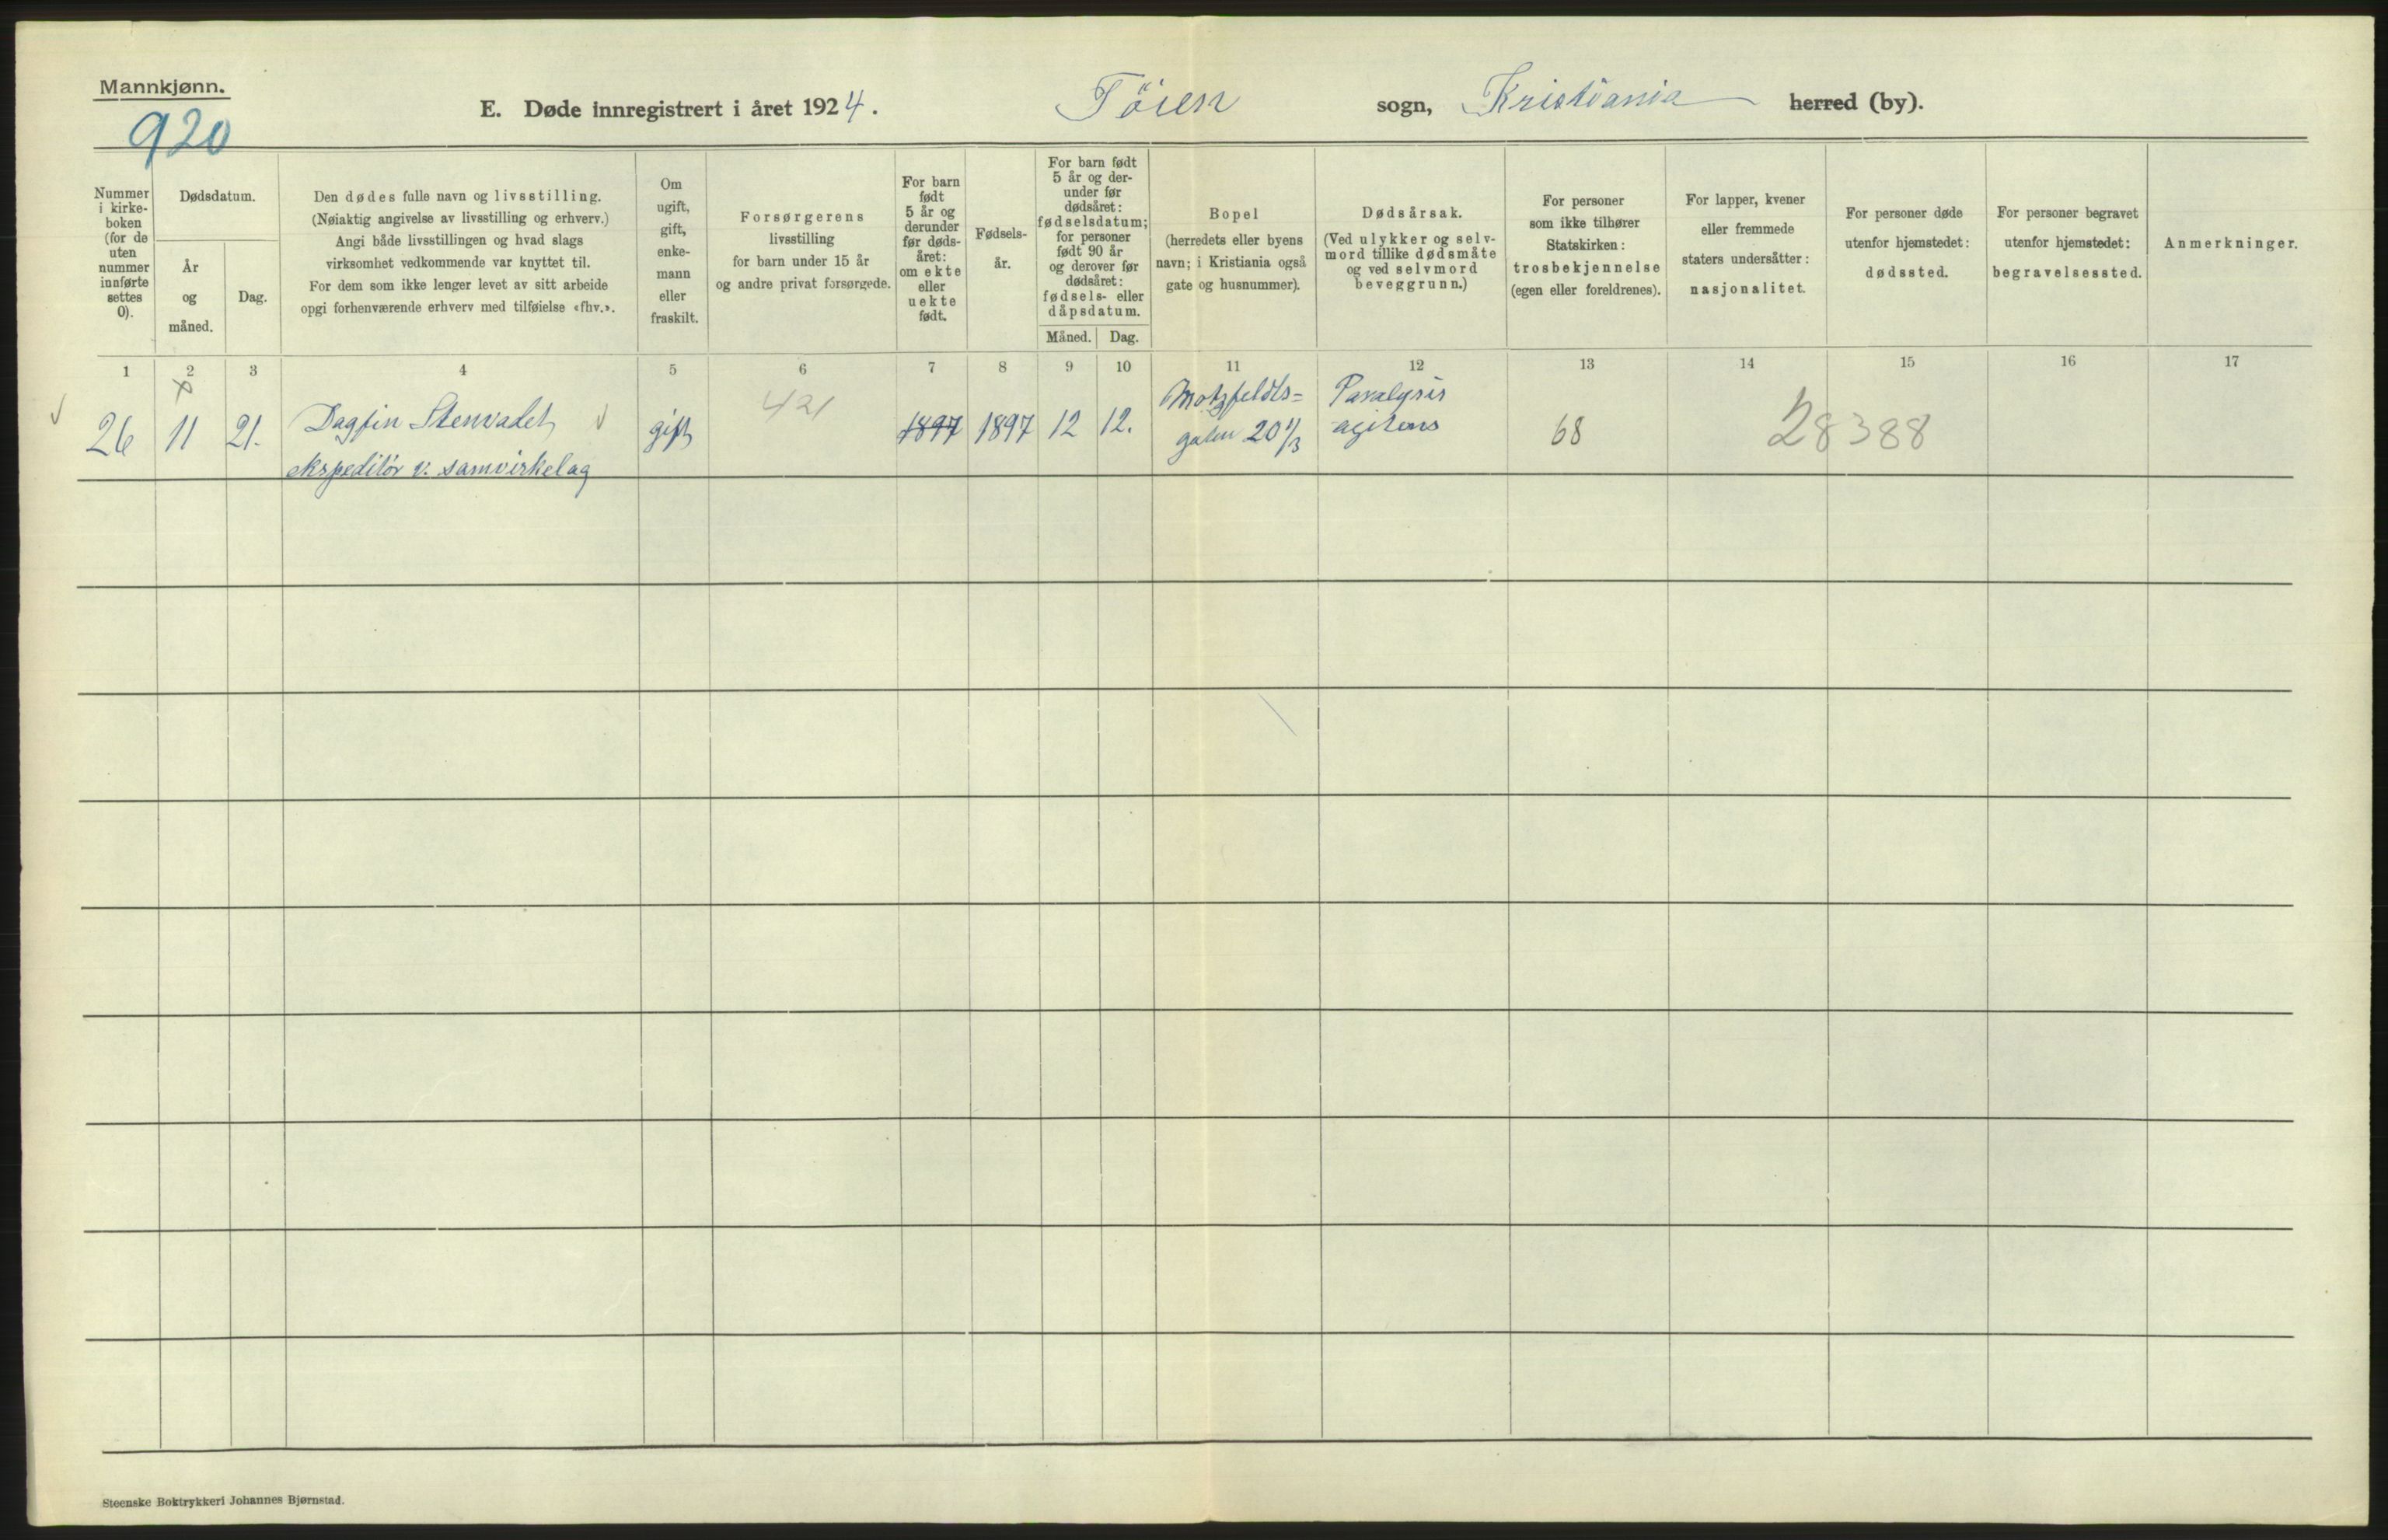 Mannkjønn.
920
E. Døde innregistrert i året 1924. Töien sogn, Kristiania herred (by).
Nummer i kirke- boken (for de uten nummer innførte settes 0).
Dødsdatum.
År og måned.
Dag.
Den dødes fulle navn og livsstilling.
(Nøiaktig angivelse av livsstilling og erhverv.)
Angi både livsstillingen og hvad slags
virksomhet vedkommende var knyttet til.
For dem som ikke lenger levet av sitt arbeide
opgi forhenværende erhverv med tilføielse «fhv.».
Om ugift, gift, enke- mann eller fraskilt.
Forsørgerens
livsstilling
for barn under 15 år
og andre privat forsørgede.
For barn født 5 år og derunder før døds- året: om ekte eller uekte født.
Fødsels- år.
For barn født
5 år og der-
under før
dødsåret:
fødselsdatum;
for personer
født 90 år
og derover før
dødsåret:
fødsels- eller
dåpsdatum.
Måned. Dag.
Bopel
(herredets eller byens
navn; i Kristiania også
gate og husnummer).
Dødsårsak.
(Ved ulykker og selv-
mord tillike dødsmåte
og ved selvmord
beveggrunn.)
For personer
som ikke tilhører
Statskirken:
trosbekjennelse
(egen eller foreldrenes).
For lapper, kvener
eller fremmede
staters undersåtter:
nasjonalitet.
For personer døde
utenfor hjemstedet:
dødssted.
For personer begravet
utenfor hjemstedet:
begravelsessted.
Anmerkninger.
1 2 3 4 5 6 7 8 9 10 11 12 13 14 15 16 17
26 11 21. Dagfin Stenvadet gift 421 1897 1897 12 12. Motzfeldts= Paralysis 68 28388
ekspeditör v. samvirkelag gaten 20 1/3 agitans
Steenske Boktrykkeri Johannes Bjørnstad.